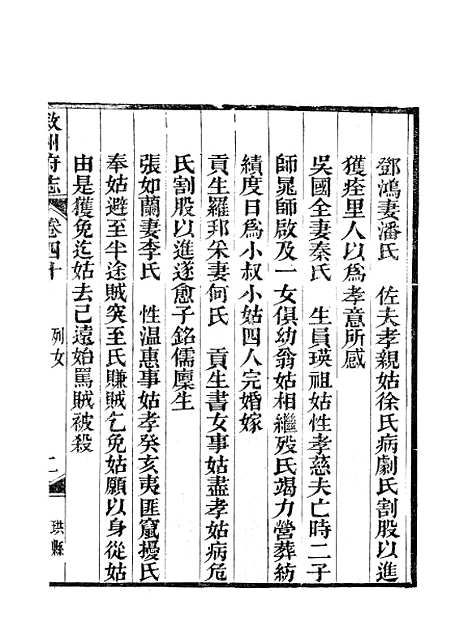 鄧鴻妻潘氏　佐夫孝親姑徐氏病劇氏割股以進
獲痊里人以爲孝意所感
吳國全妻秦氏　生員瑛祖姑性孝慈夫亡時二子
師晁師啟及一女俱幼翁姑相繼歿氏竭力營葬紡
績度日爲小叔小姑四人完婚嫁
貢生羅邦采妻何氏　貢生書女事姑盡孝姑病危
氏割股以進遂愈子銘儒廩生
張如蘭妻李氏　性温惠事姑孝癸亥夷匪竄擾氏
奉姑避至半途賊突至氏賺賊乞免姑願以身從姑
由是獲免迄姑去已遠始罵賊被殺
敘州府志　卷四十　列女　珙縣